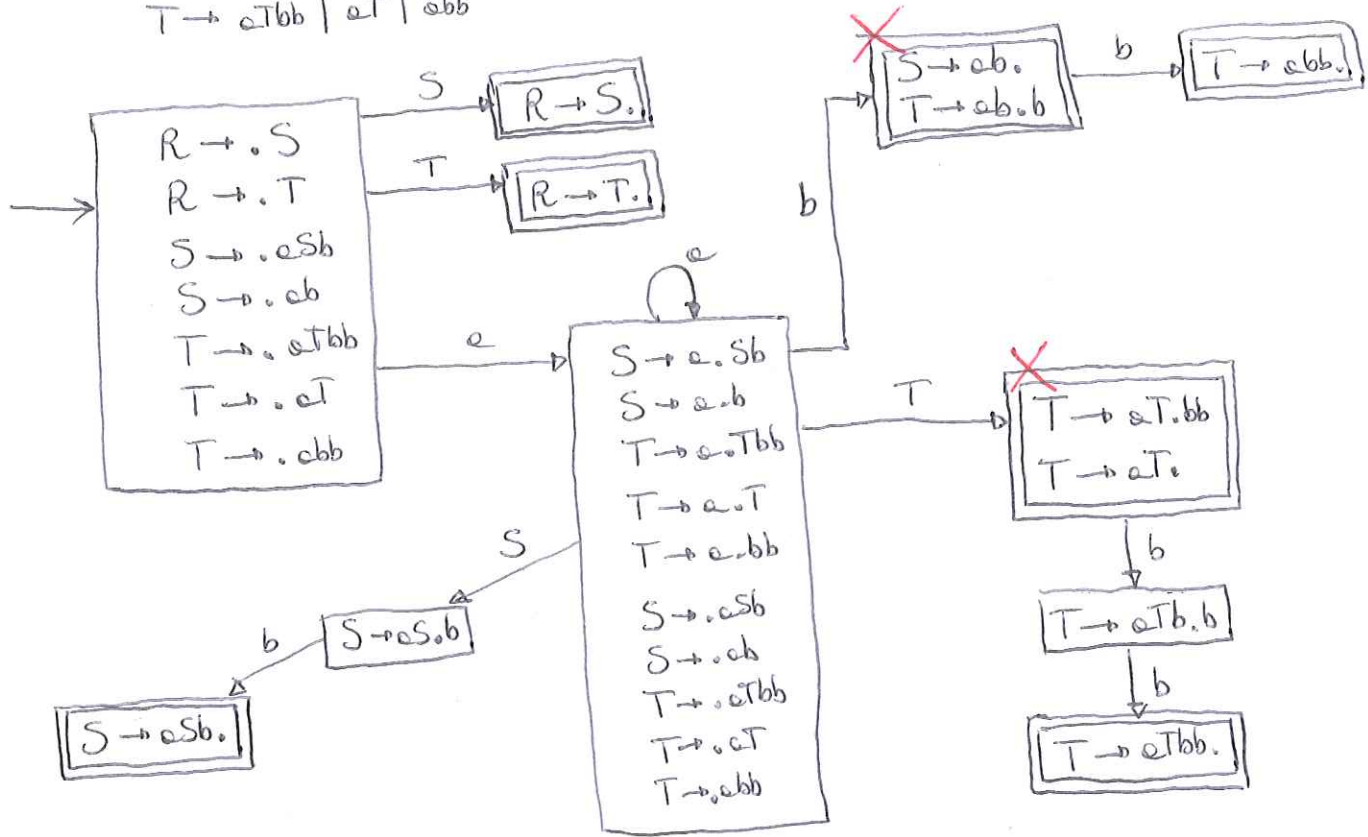 T → aTbb | aT | abb
R → .S
R → .T
S → .aSb
S → .ab
T → .aTbb
T → .aT
T → .abb
S
R → S.
T
R → T.
a
a
S → a.Sb
S → a.b
T → a.Tbb
T → a.T
T → a.bb
S → .aSb
S → .ab
T → .aTbb
T → .aT
T → .abb
b
S → ab.
T → ab.b
b
T → abb.
T
T → aT.bb
T → aT.
b
T → aTb.b
b
T → aTbb.
S
S → aS.b
b
S → aSb.